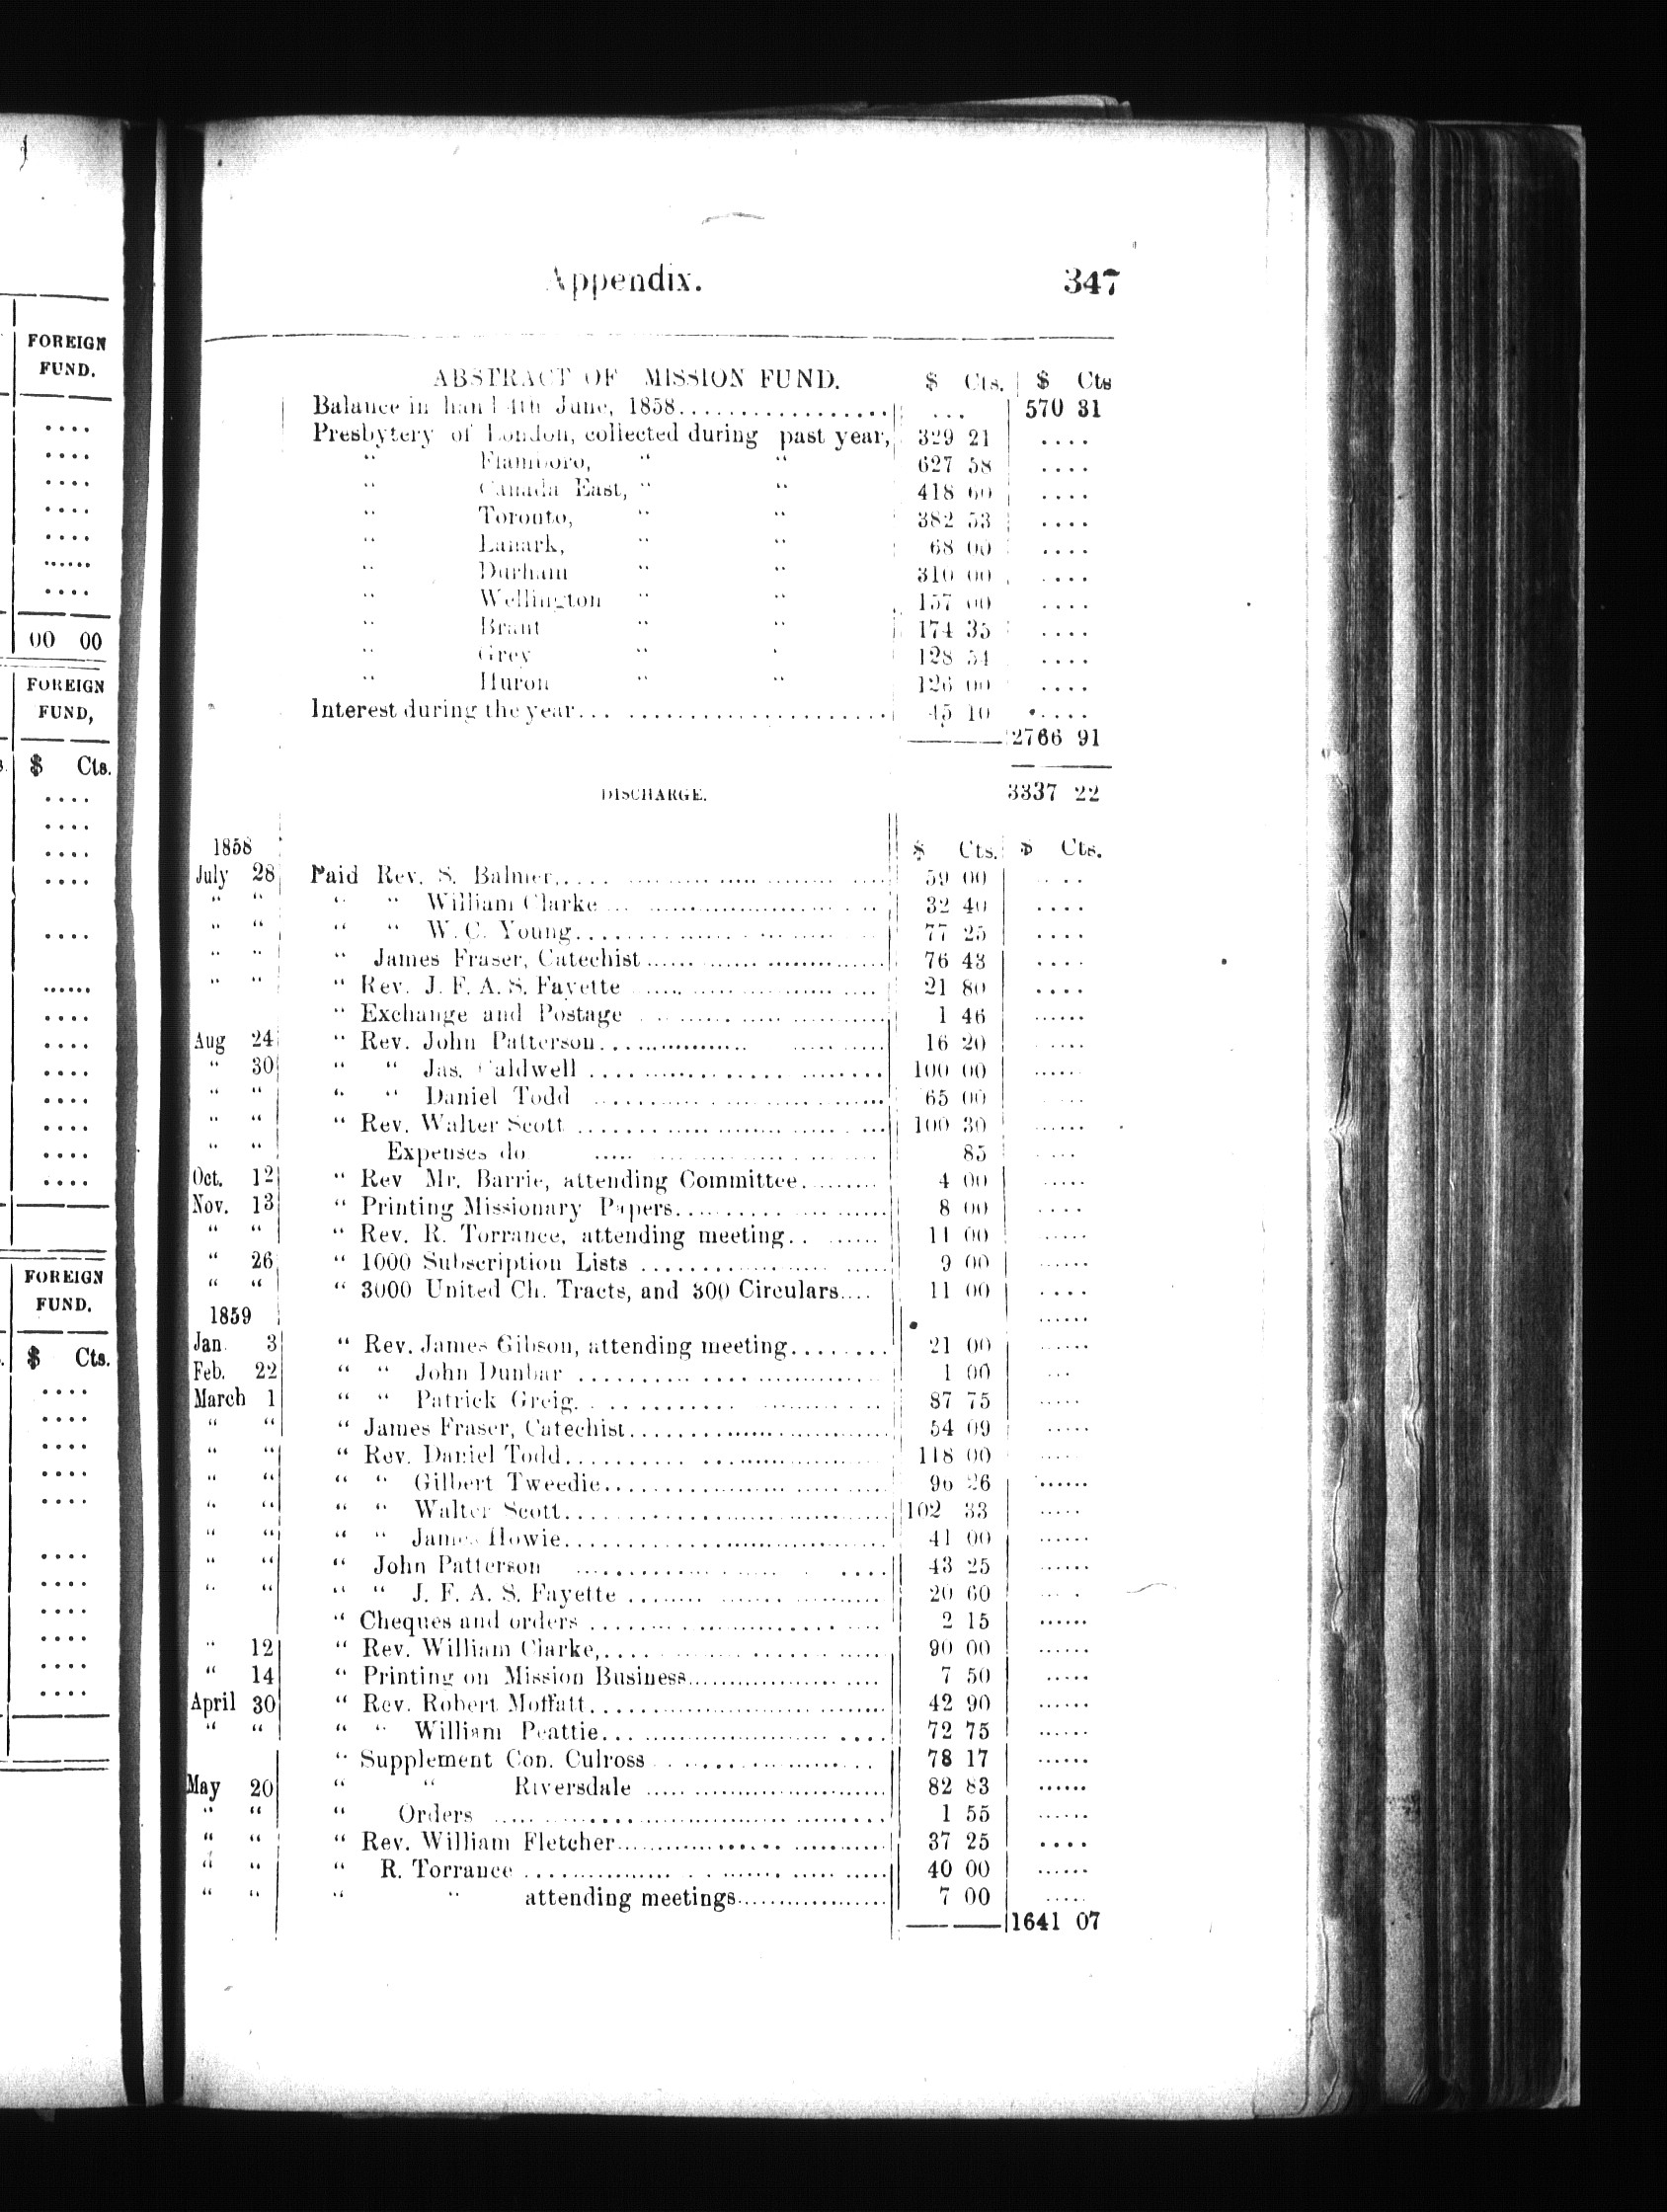 FOREIGN
FUND.
00 00
FOREIGN
FUND,
$ Cts.
FOREIGN
FUND.
$ Cts.
Appendix. 347
ABSTRACT OF MISSION FUND. $ Cts. $ Cts
Balance in hand 4th June, 1858.................. ... 570 31
Presbytery of London, collected during past year, 329 21 ....
“ Flamboro, “ “ 627 58 ....
“ Canada East, “ “ 418 60 ....
“ Toronto, “ “ 382 53 ....
“ Lanark, “ “ 68 00 ....
“ Durham “ “ 310 00 ....
“ Wellington “ “ 157 00 ....
“ Brant “ “ 174 35 ....
“ Grey “ “ 128 54 ....
“ Huron “ “ 126 00 ....
Interest during the year... ...................... 45 10 ....
2766 91
DISCHARGE. 3337 22
1858 $ Cts. $ Cts.
July 28 Paid Rev. S. Balmer...... 59 00 ....
“ “ “ “ William Clarke ... 32 40 ....
“ “ “ “ W. C. Young...... 77 25 ....
“ “ “ James Fraser, Catechist...... 76 43 ....
“ “ “ Rev. J. F. A. S. Fayette ...... 21 80 ....
“ Exchange and Postage ...... 1 46 ......
Aug 24 “ Rev. John Patterson...... 16 20 ....
“ 30 “ “ Jas. Caldwell ...... 100 00 ......
“ “ “ “ Daniel Todd ...... 65 00 ....
“ “ “ Rev. Walter Scott ...... 100 30 ......
“ “ Expenses do ...... 85 ....
Oct. 12 “ Rev Mr. Barrie, attending Committee......... 4 00 .....
Nov. 13 “ Printing Missionary Papers...... 8 00 ....
“ “ “ Rev. R. Torrance, attending meeting.. ...... 11 00 ......
“ 26 “ 1000 Subscription Lists ...... 9 00 ......
“ “ “ 3000 United Ch. Tracts, and 300 Circulars.... 11 00 ....
1859 ......
Jan. 3 “ Rev. James Gibson, attending meeting........ 21 00 ......
Feb. 22 “ “ John Dunbar ...... 1 00 ...
March 1 “ “ Patrick Greig...... 87 75 .....
“ “ “ James Fraser, Catechist...... 54 09 .....
“ “ “ Rev. Daniel Todd...... 118 00 .....
“ “ “ “ Gilbert Tweedie...... 96 26 ......
“ “ “ “ Walter Scott...... 102 33 .....
“ “ “ “ James Howie...... 41 00 ......
“ “ “ John Patterson ...... 43 25 ......
“ “ “ “ J. F. A. S. Fayette ...... 20 60 ....
“ Cheques and orders ...... 2 15 ......
“ 12 “ Rev. William Clarke,...... 90 00 ......
“ 14 “ Printing on Mission Business...... 7 50 .....
April 30 “ Rev. Robert Moffatt...... 42 90 ......
“ “ “ “ William Peattie...... 72 75 ......
“ Supplement Con. Culross ...... 78 17 ......
May 20 “ “ Riversdale ...... 82 83 ......
“ “ “ Orders ...... 1 55 ......
“ “ “ Rev. William Fletcher...... 37 25 ....
“ “ “ R. Torrance ...... 40 00 ......
“ “ “ “ attending meetings...... 7 00 .....
1641 07